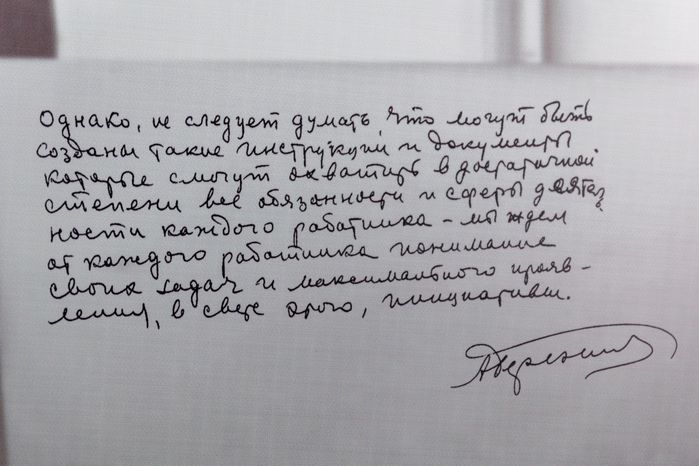 Однако, не следует думать, что могут быть
созданы такие инструкции и документы
которые смогут охватить в достаточной
степени все обязанности и сферы деятель
ности каждого работника – мы ждем
от каждого работника понимание
своих задач и максимального прояв –
ления, в свете этого, инициативы.